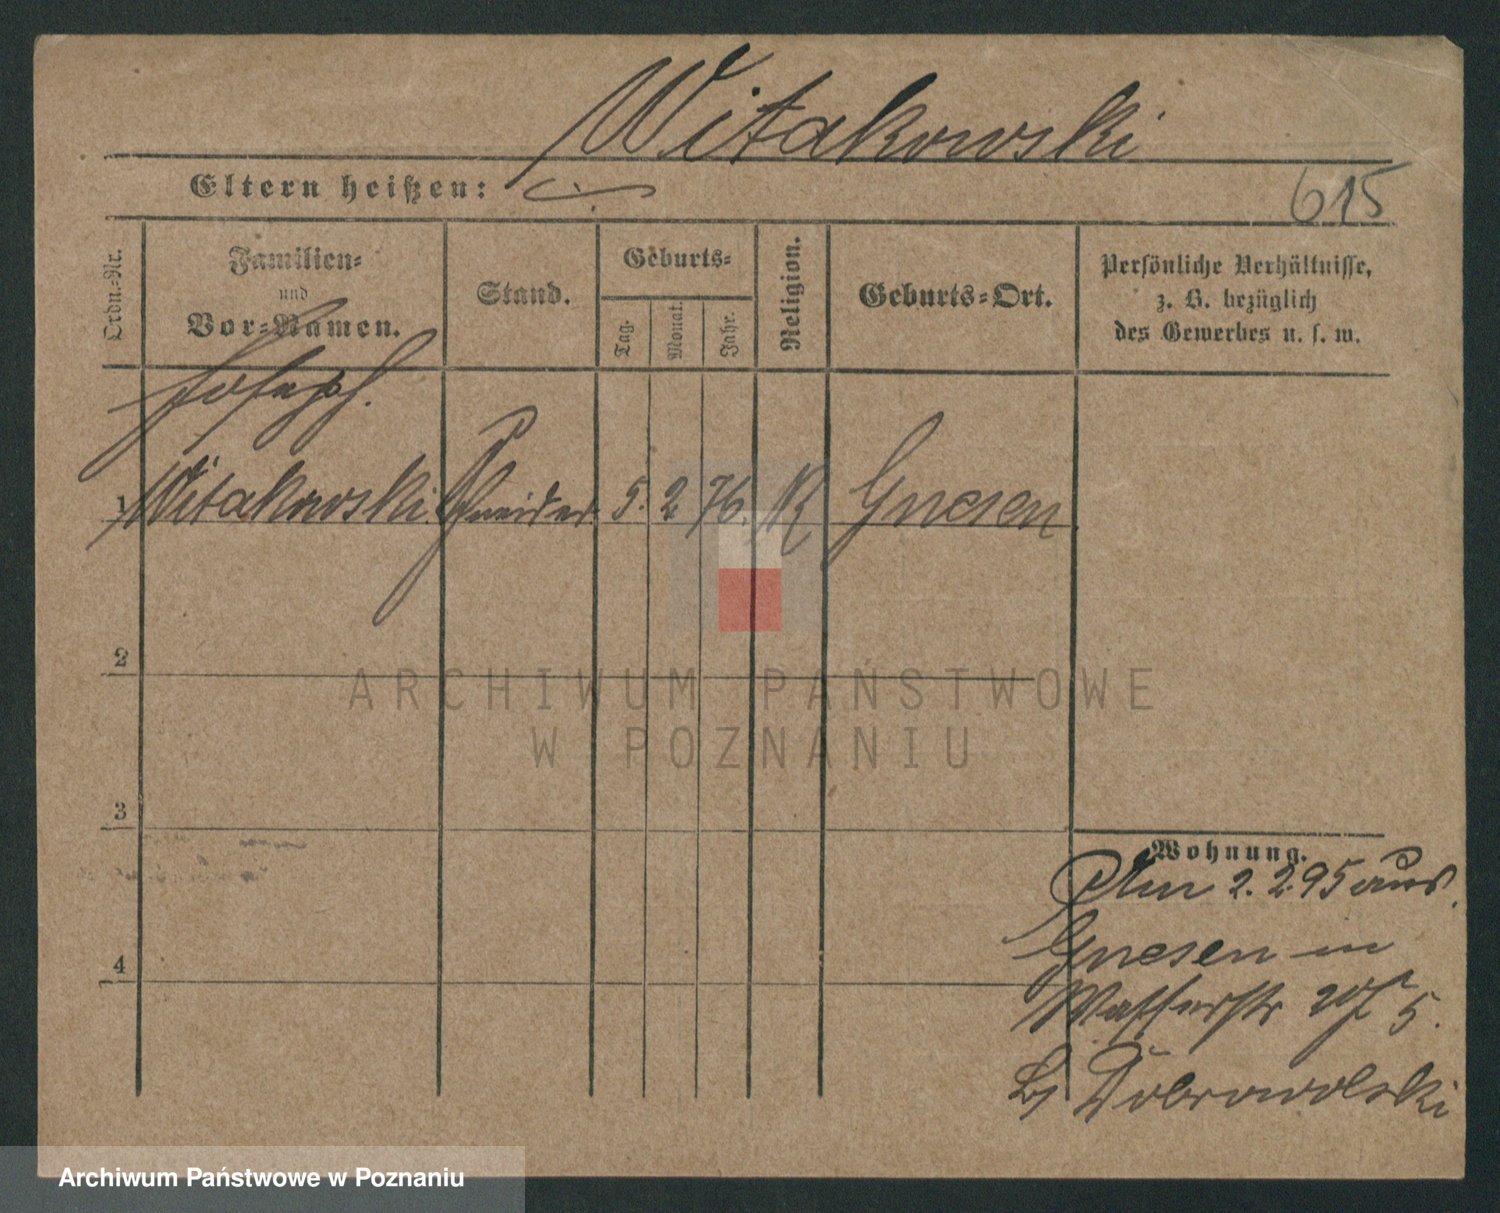 Witakowski
Eltern heißen:
615
Ordn.-Nr.
Familien-
und
Vor-Namen.
Stand.
Geburts-
Tag.
Monat.
Jahr.
Religion.
Geburts-Ort.
Persönliche Verhältnisse,
z. B. bezüglich
des Gewerbes u. s. w.
Joseph.
1 Witakowski Schneider 5. 2 76. K Gnesen
2
3
4
Wohnung.
Am 2. 2 95 aus
Gnesen in
Wasserstr 5.
b/ Dobrowolski
ARCHIWUM PAŃSTWOWE
W POZNANIU
Archiwum Państwowe w Poznaniu